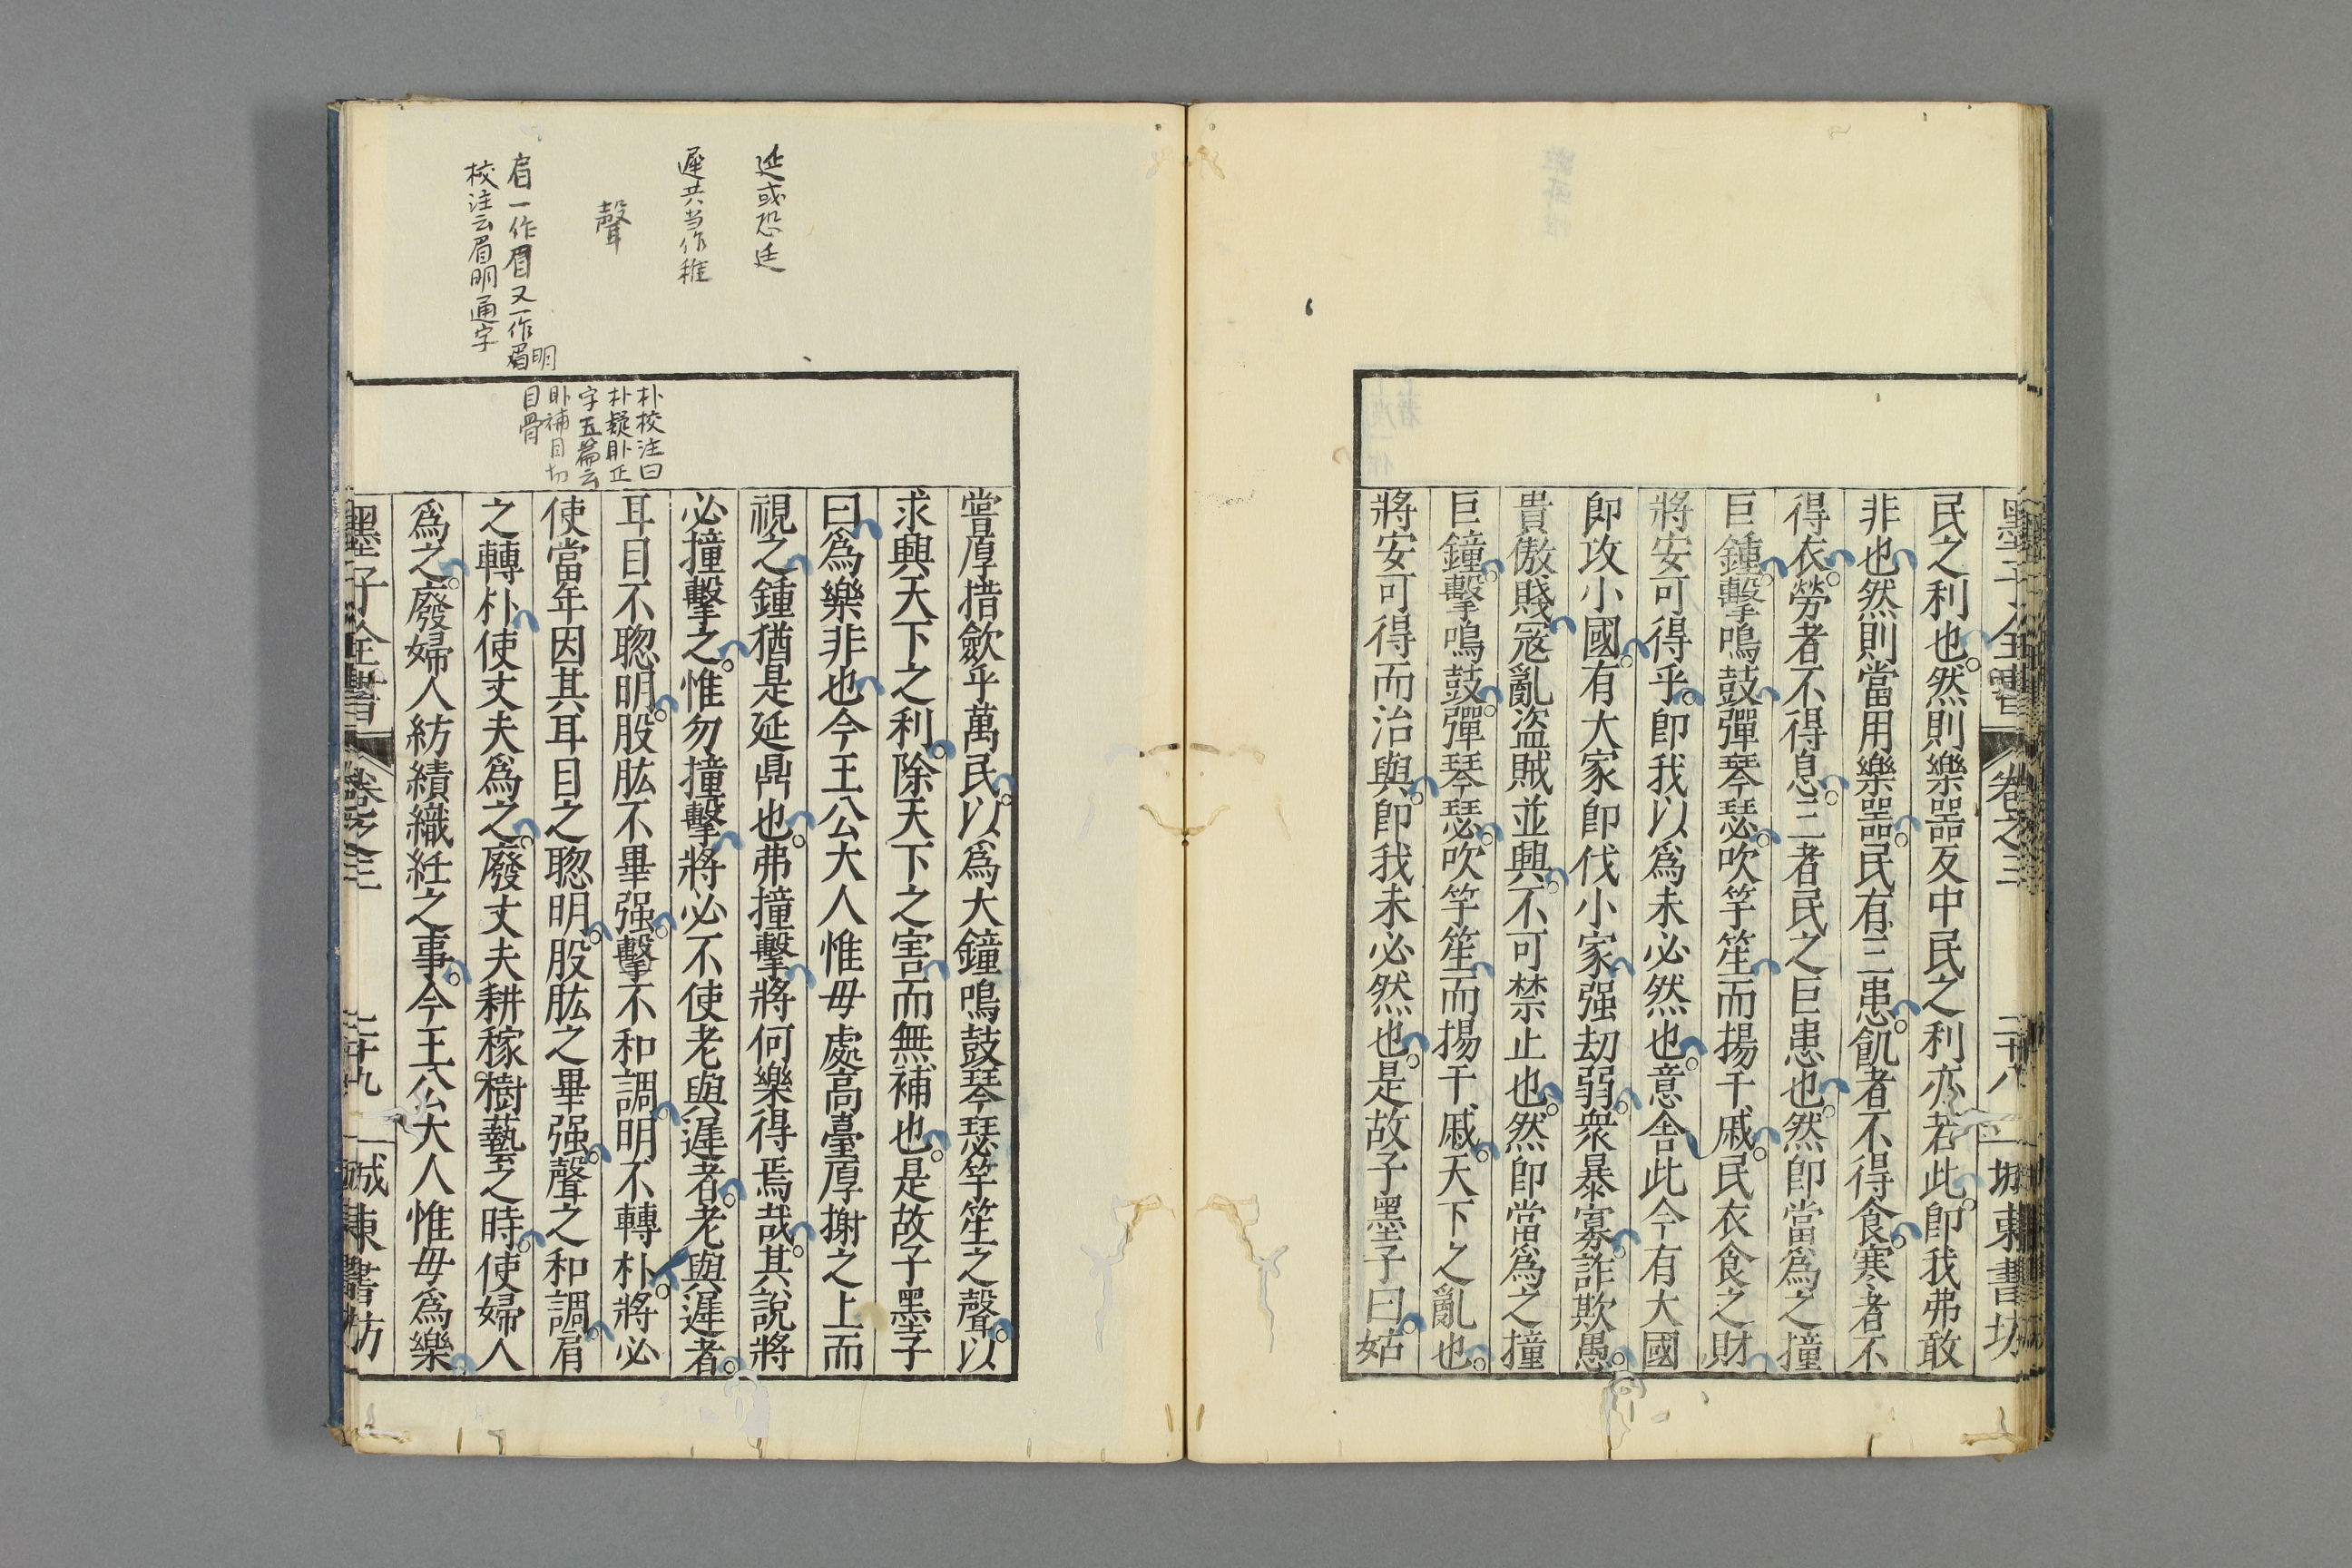 墨子全書 卷之三 二十八 城東書坊
民之利也然則樂噐反中民之利亦若此卽我弗敢
非也然則當用樂噐民有三患飢者不得食寒者不
得衣勞者不得息三者民之巨患也然卽當爲之撞
巨鍾擊鳴鼓彈琴瑟吹竽笙而揚干戚民衣食之財
將安可得乎卽我以爲未必然也意舍此今有大國
卽攻小國有大家卽伐小家强刧弱衆暴寡詐欺愚
貴傲賤寇亂盜賊並興不可禁止也然卽當爲之撞
巨鐘擊鳴鼓彈琴瑟吹竽笙而揚干戚天下之亂也
將安可得而治與卽我未必然也是故子墨子曰姑
嘗厚措歛乎萬民以爲大鐘鳴鼓琴瑟竽笙之聲以
求興天下之利除天下之害而無補也是故子墨子
曰爲樂非也今王公大人惟毋處高臺厚榭之上而
視之鍾猶是延鼎也弗撞擊將何樂得焉哉其說將
必撞擊之惟勿撞擊將必不使老與遲者老與遲者
耳目不聦明股肱不畢强聲不和調明不轉朴將必
使當年因其耳目之聦明股肱之畢强聲之和調肩
之轉朴使丈夫爲之廢丈夫耕稼樹藝之時使婦人
爲之廢婦人紡績織紝之事今王公大人惟毋爲樂
墨子全書 卷之三 二十九 城東書坊
延或恐廷
遲共当作稚
聲
肩一作眉又一作眉明
校注云眉明通字
朴校注曰
朴疑卧正
字玉篇云
卧補目切
目骨